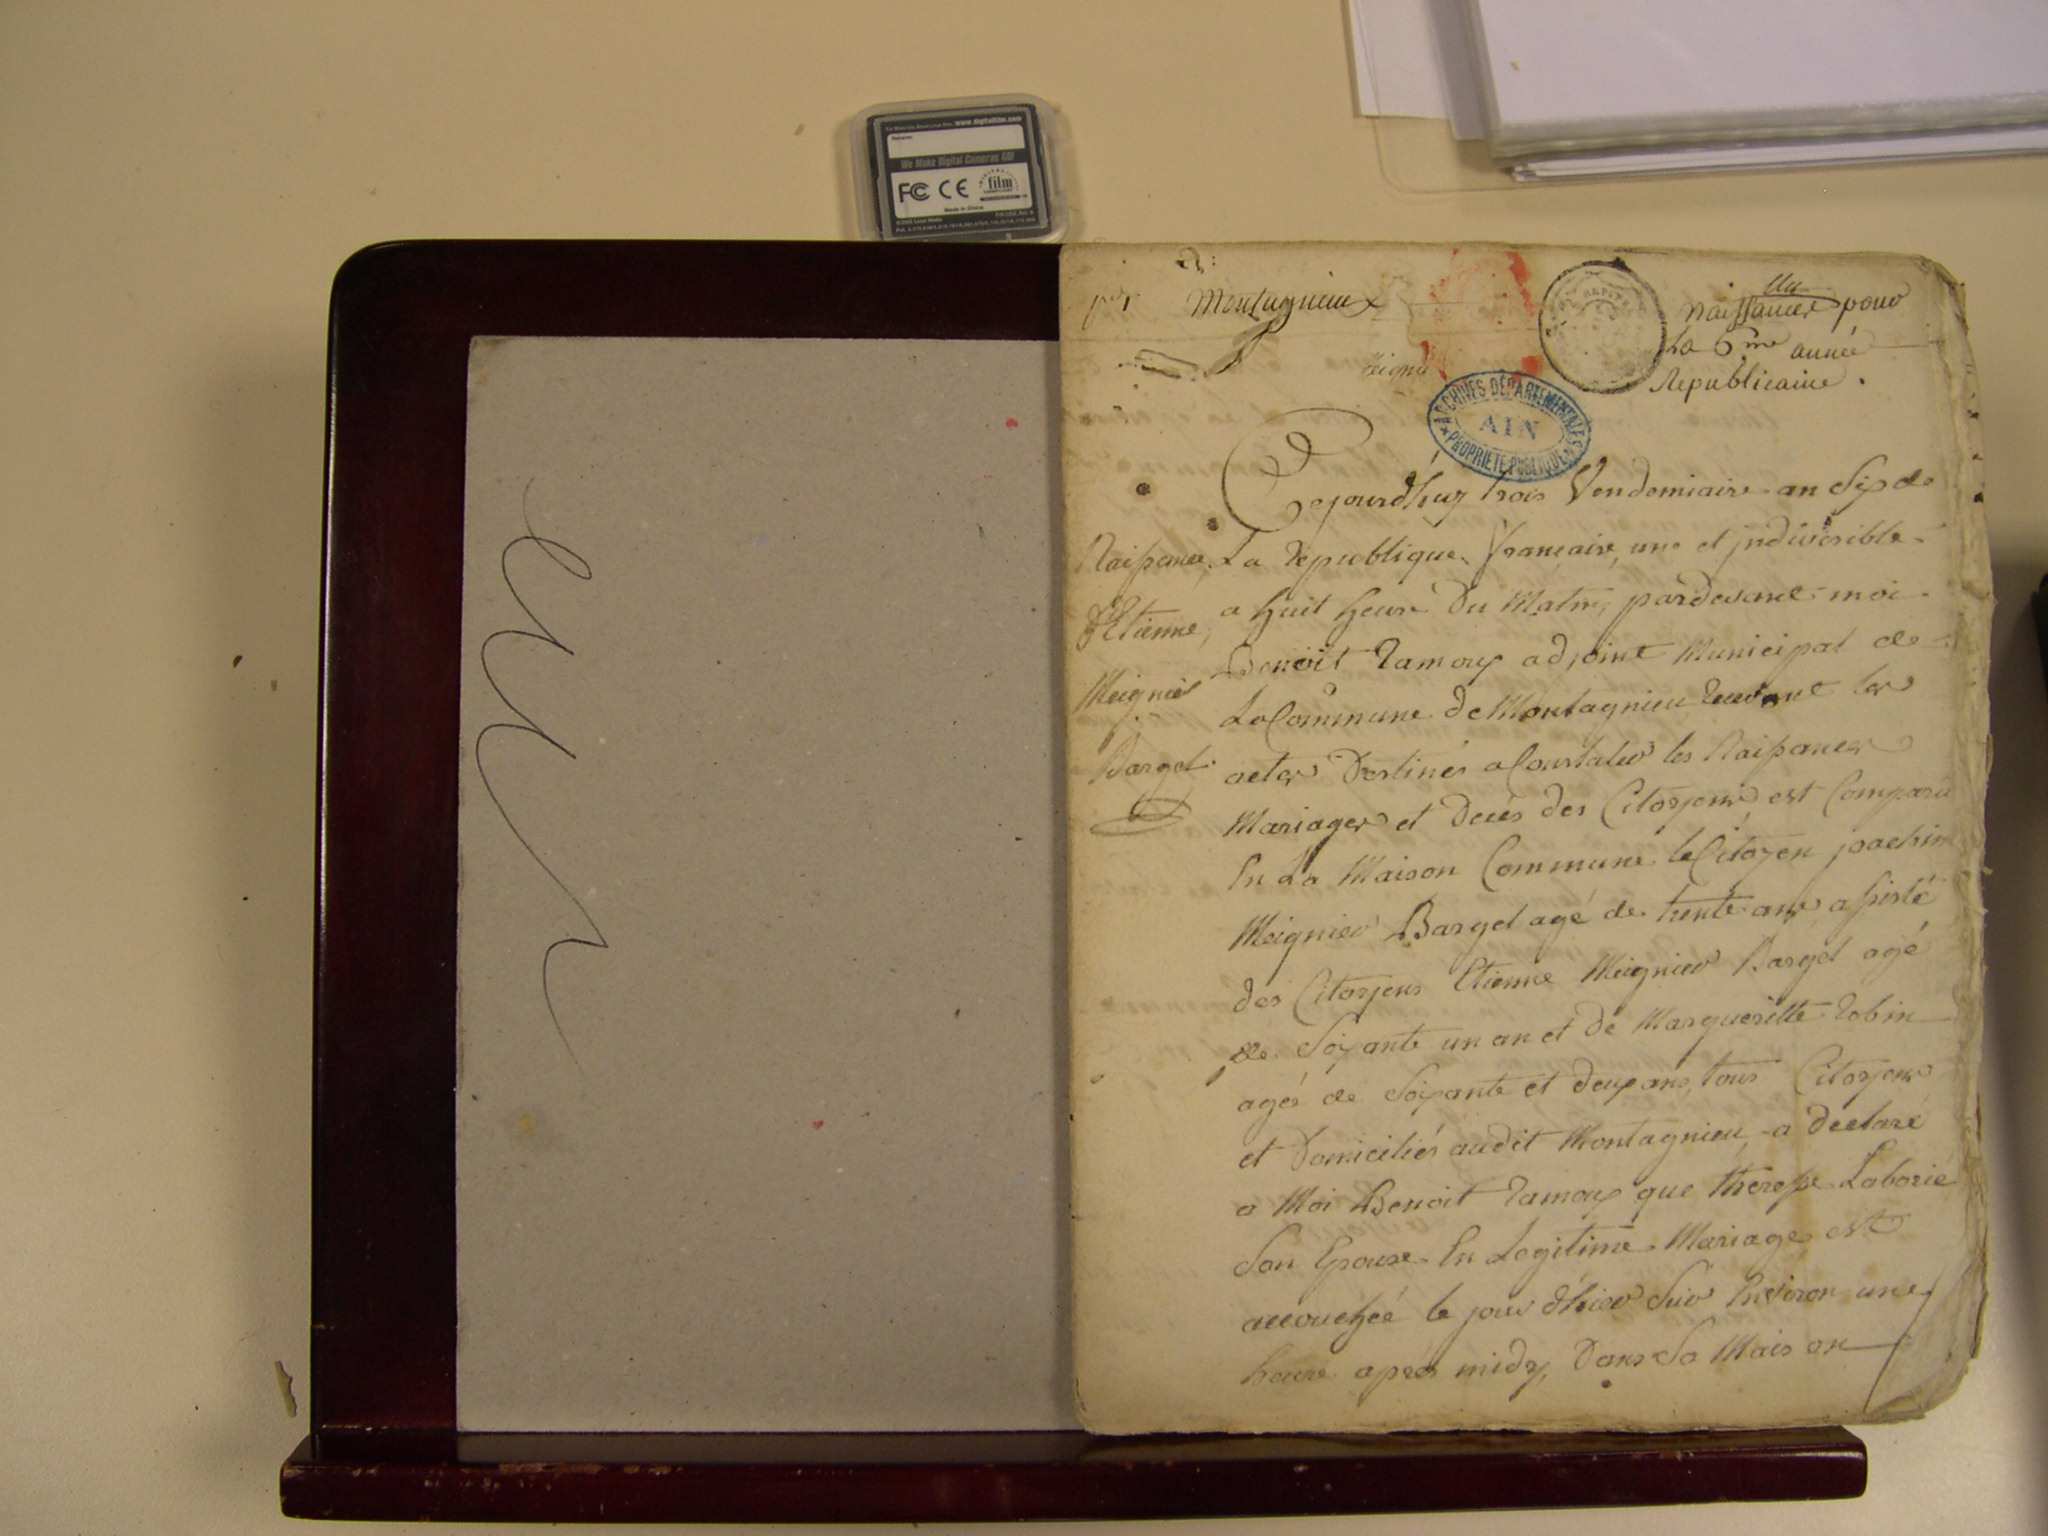 www.digitalfilm.com
We Make Digital Cameras GO!
FC CE
film
Made in China
Montagnieu
naissances pour
La 6me année
Republicaine.
ARCHIVES DÉPARTEMENTALES
AIN
PROPRIÉTÉ PUBLIQUE
Cejourd'huy trois Vendemiaire an Six de
La Republique française, une et jndivisible
a huit heure Du Matin, pardevant moi
Benoit Ramoux adjoint Municipal de
La Commune de Montagnieu recevant les
actes Destinés a Constater les Naissances
Mariages et Décés des Citoyens est Comparu
En La Maison Commune le Citoyen joachim
Meignier Barget agé de trente ans, assisté
des Citoyens Etienne Meignier Barget agé
de Soixante un an et de Margueritte Robin
agée de Soixante et deux ans, tous Citoyens
et Domiciliés audit Montagnieu, a declaré
a Moi Benoit Ramoux que therese Laborié
Son Epouse En Legitime Mariage est
accouchée le jour d'hier Sur Environ une
heure aprés midy, Dans Sa Maison
Naissance
d'Etienne
Meignier
Barget